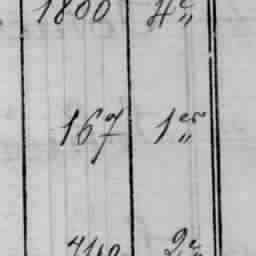 1800 4e„
167 1er„
2e„